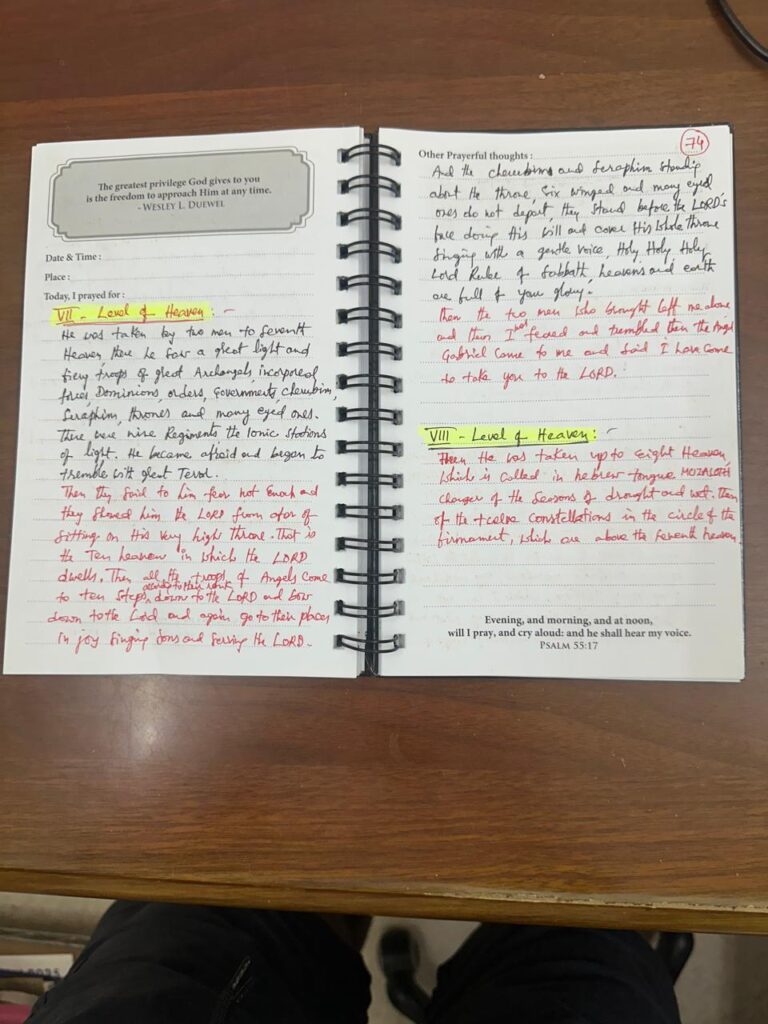 The greatest privilege God gives to you
is the freedom to approach Him at any time.
- WESLEY L. DUEWEL
Date & Time :
Place :
Today, I prayed for :
VII - Level of Heaven : -
He was taken by two men to Seventh
Heaven, there he saw a great light and
fiery troops of great Archangels, incorporeal
forces, Dominions, orders, Governments, cherubim,
Seraphim, thrones and many eyed ones.
There were nine Regiments the Ionic stations
of light. He became afraid and began to
tremble with great Terror.
Then they said to him fear not Enoch and
they showed him the LORD from afar of
sitting on His very high Throne. That is
the Ten heaven in which the LORD
dwells. Then all the troops of Angels come
to ten steps according to their rank, down to the LORD and bow
down to the Lord and again go to their places
in joy singing songs and serving the LORD.
74
Other Prayerful thoughts :
And the cherubims and Seraphim standing
about the throne, Six winged and many eyed
ones do not depart, they stand before the LORD's
face doing His will and cover His whole throne
singing with a gentle voice, Holy Holy Holy,
Lord Ruler of Sabbath, heavens and earth
are full of your glory.
Then the two men who brought left me alone
and then I just feared and trembled then the Angel
Gabriel came to me and said I have come
to take you to the LORD.
VIII - Level of Heaven : -
Then He was taken up to Eight Heaven,
which is called in hebrew tongue
changer of the seasons of drought and wet. Then
of the twelve constellations in the circle of the
firmament, which are above the Seventh heaven
Evening, and morning, and at noon,
will I pray, and cry aloud: and he shall hear my voice.
PSALM 55:17